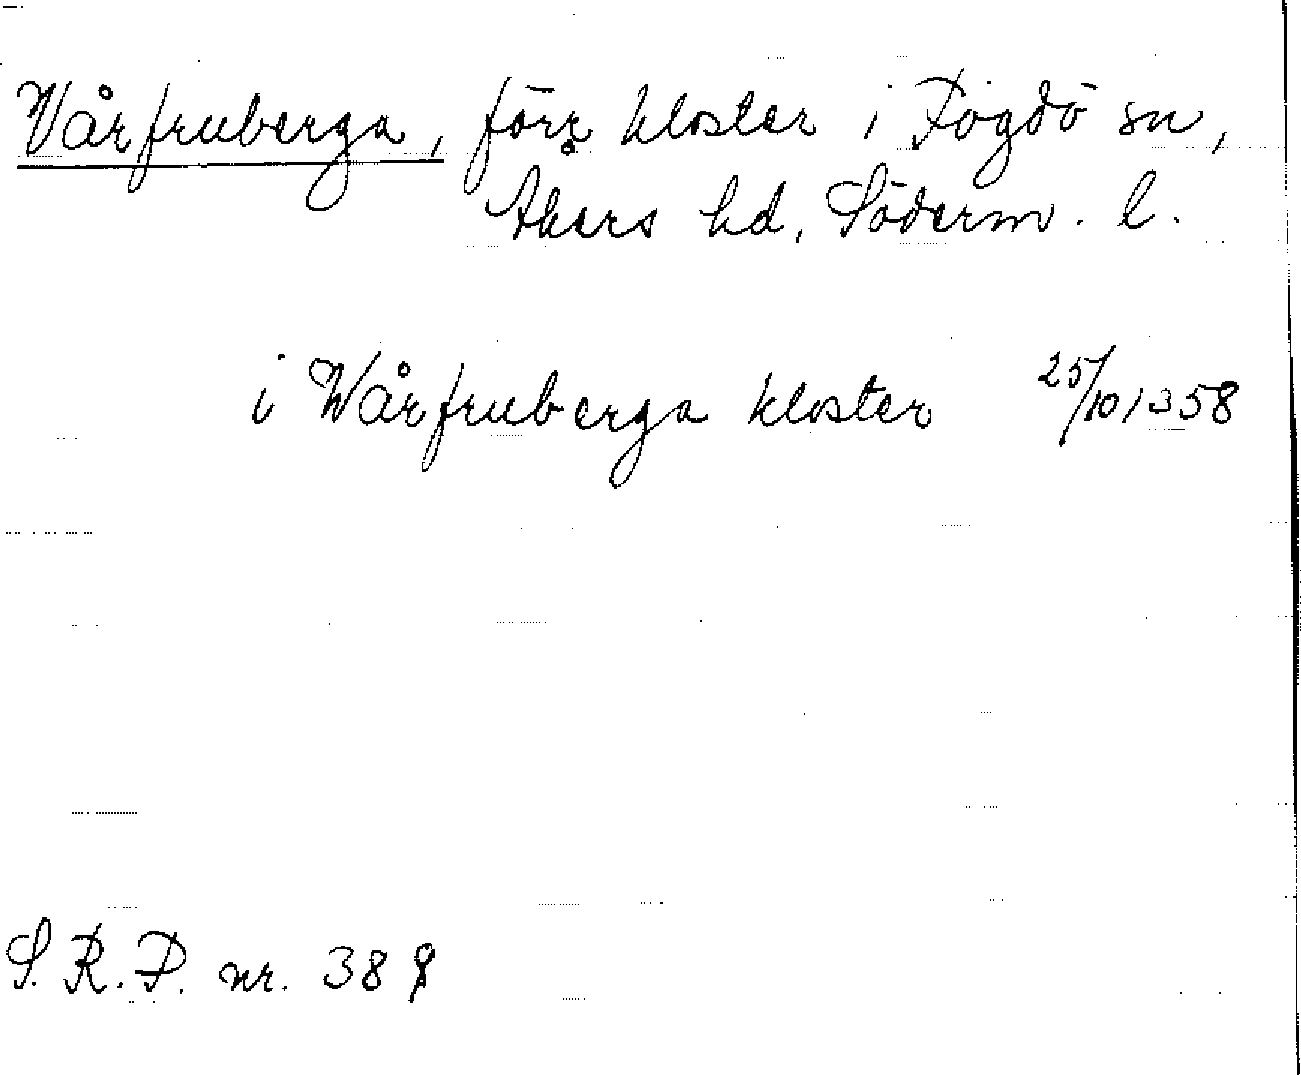 Vårfruberga, förr kloster i Fogdö sn,
Åkers hd, Söderm. l.
i Wårfruberga kloster 25/10 1358
S. R. P. nr.